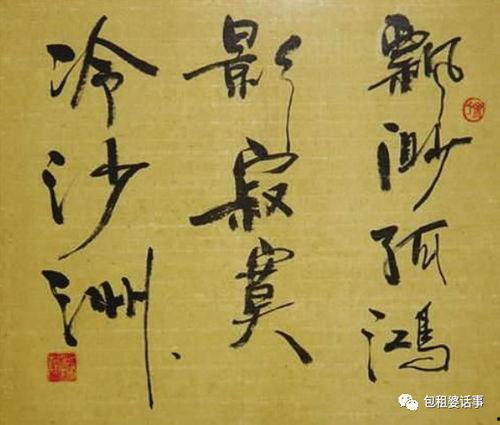 飄渺孤鴻
影寂寞
冷沙洲
包租婆话事